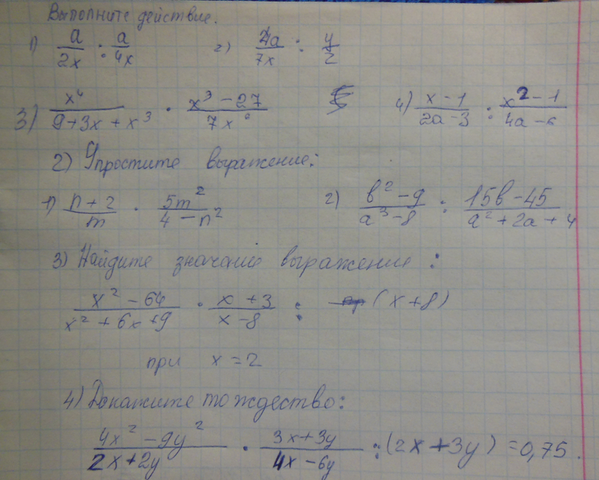 Выполните действие.
1) a/2x : a/4x 2) 4a/7x : y/2
3) x⁴/9+3x+x³ · x³-27/7x 4) x-1/2a-3 : x²-1/4a-6
2) Упростите выражение:
1) n+2/m · 5m²/4-n² 2) b²-9/a³-8 : 15b-45/a²+2a+4
3) Найдите значание выражение:
x²-64/x²+6x+9 · x+3/x-8 : (x+8)
при x=2
4) Докажите тождество:
4x²-9y²/2x+2y · 3x+3y/4x-6y : (2x+3y) =0,75.